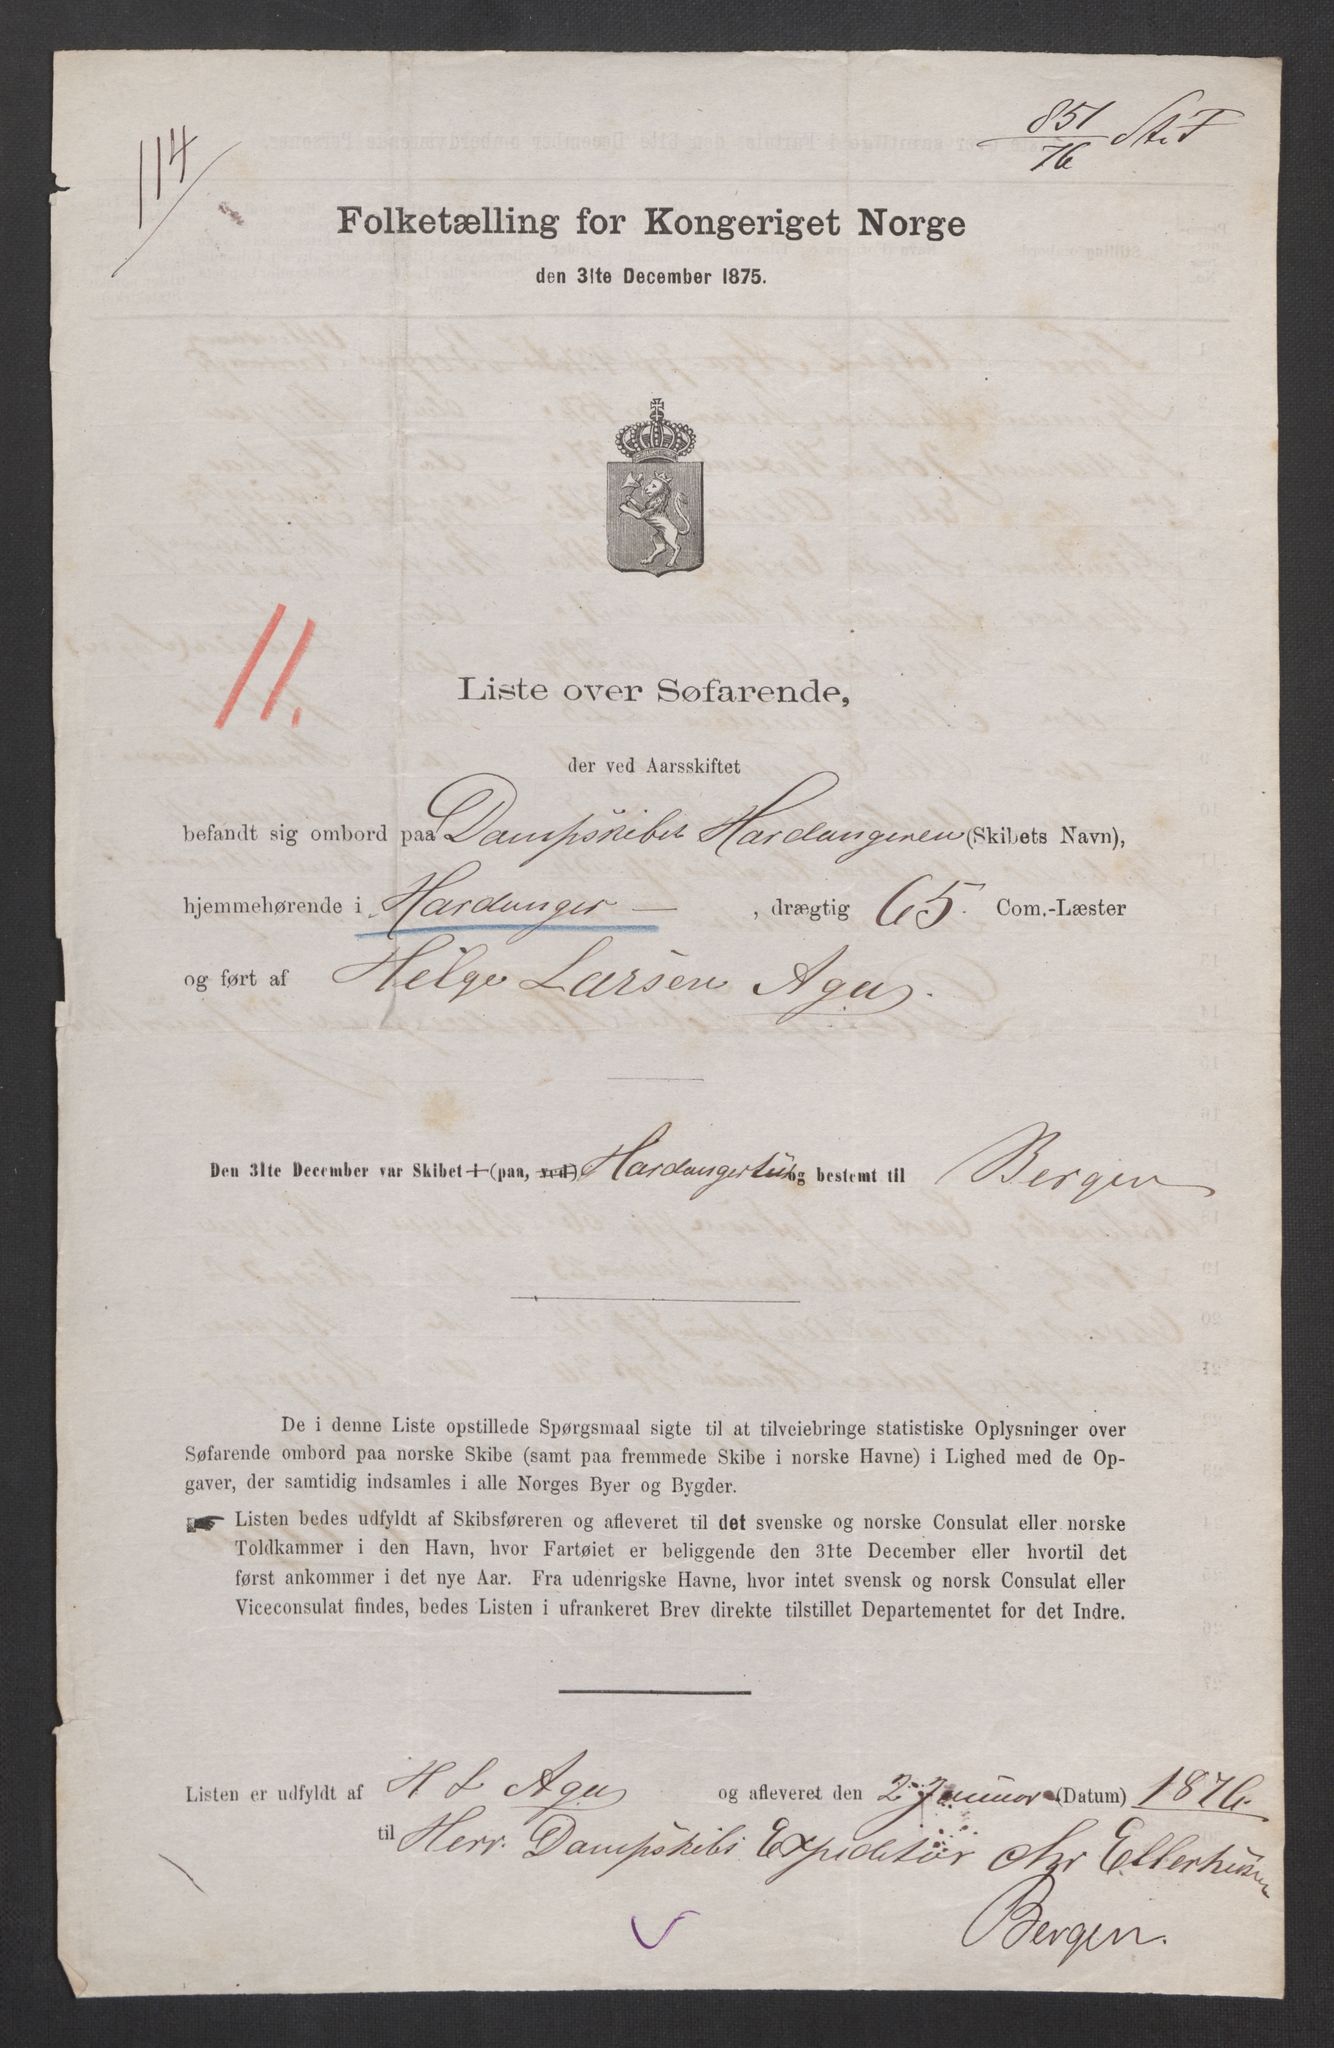 114
851/76 St.F
Folketælling for Kongeriget Norge
den 31te December 1875.
11.
Liste over Søfarende,
der ved Aarsskiftet
befandt sig ombord paa Dampskibet Hardangeren (Skibets Navn),
hjemmehørende i Hardanger — , drægtig 65. Com.-Læster
og ført af Helge Larsen Aga.
Den 31te December var Skibet i (paa, ved) og bestemt til Bergen
De i denne Liste opstillede Spørgsmaal sigte til at tilveiebringe statistiske Oplysninger over
Søfarende ombord paa norske Skibe (samt paa fremmede Skibe i norske Havne) i Lighed med de Op-
gaver, der samtidig indsamles i alle Norges Byer og Bygder.
☛ Listen bedes udfyldt af Skibsføreren og afleveret til det svenske og norske Consulat eller norske
Toldkammer i den Havn, hvor Fartøiet er beliggende den 31te December eller hvortil det
først ankommer i det nye Aar. Fra udenrigske Havne, hvor intet svensk og norsk Consulat eller
Viceconsulat findes, bedes Listen i ufrankeret Brev direkte tilstillet Departementet for det Indre.
Listen er udfyldt af H L Aga og afleveret den 2 Januar (Datum) 1876.
til Herr Dampskibs Expeditør Chr Ellerhusen
Bergen.